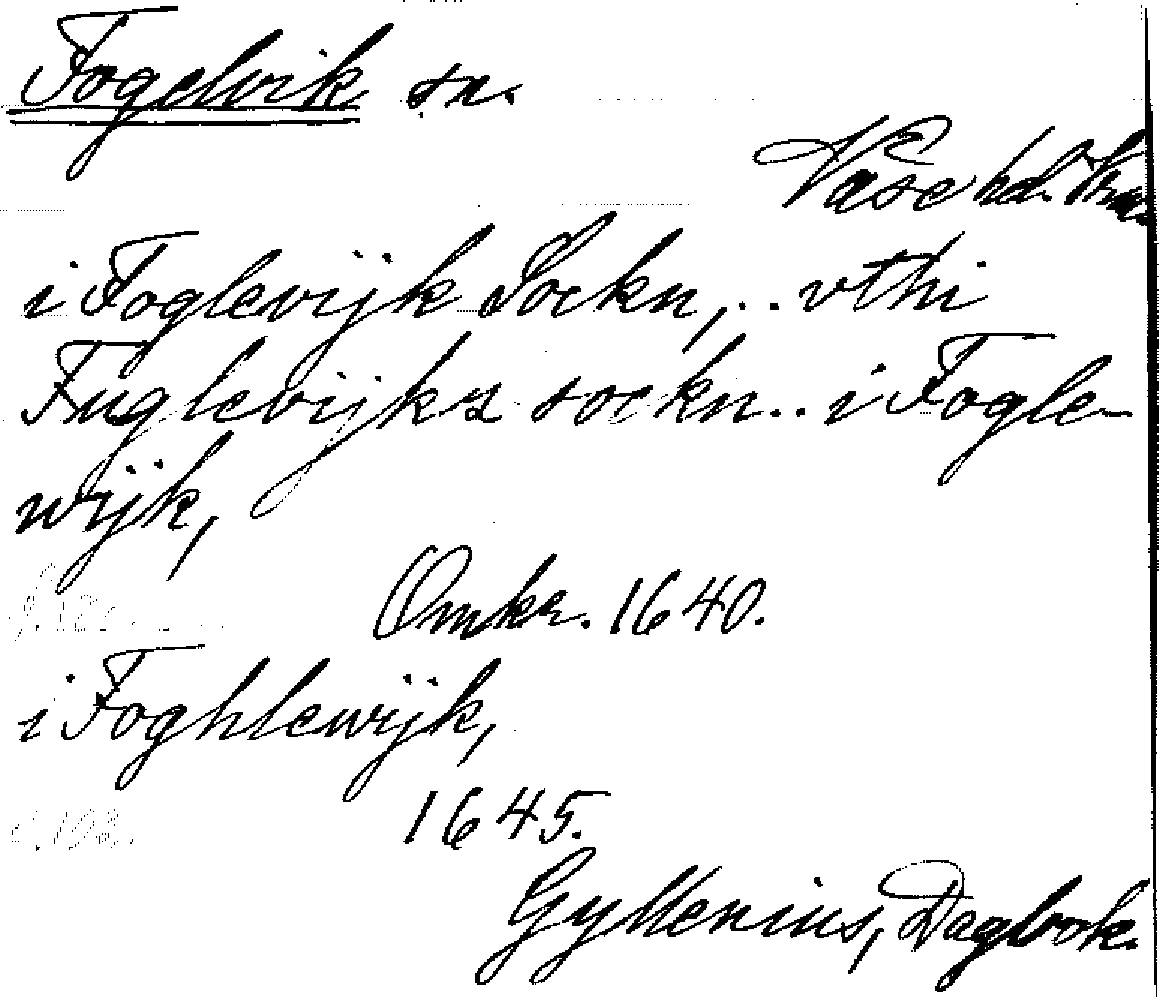 Fogelvik sn.
Väse hd.
i Foglevijk Sockn,.. vthi
Fuglevijks sockn.. i Fogle-
wijk,
Omkr. 1640.
i Foghlewijk,
1645.
Gyllenius, Dagbok.